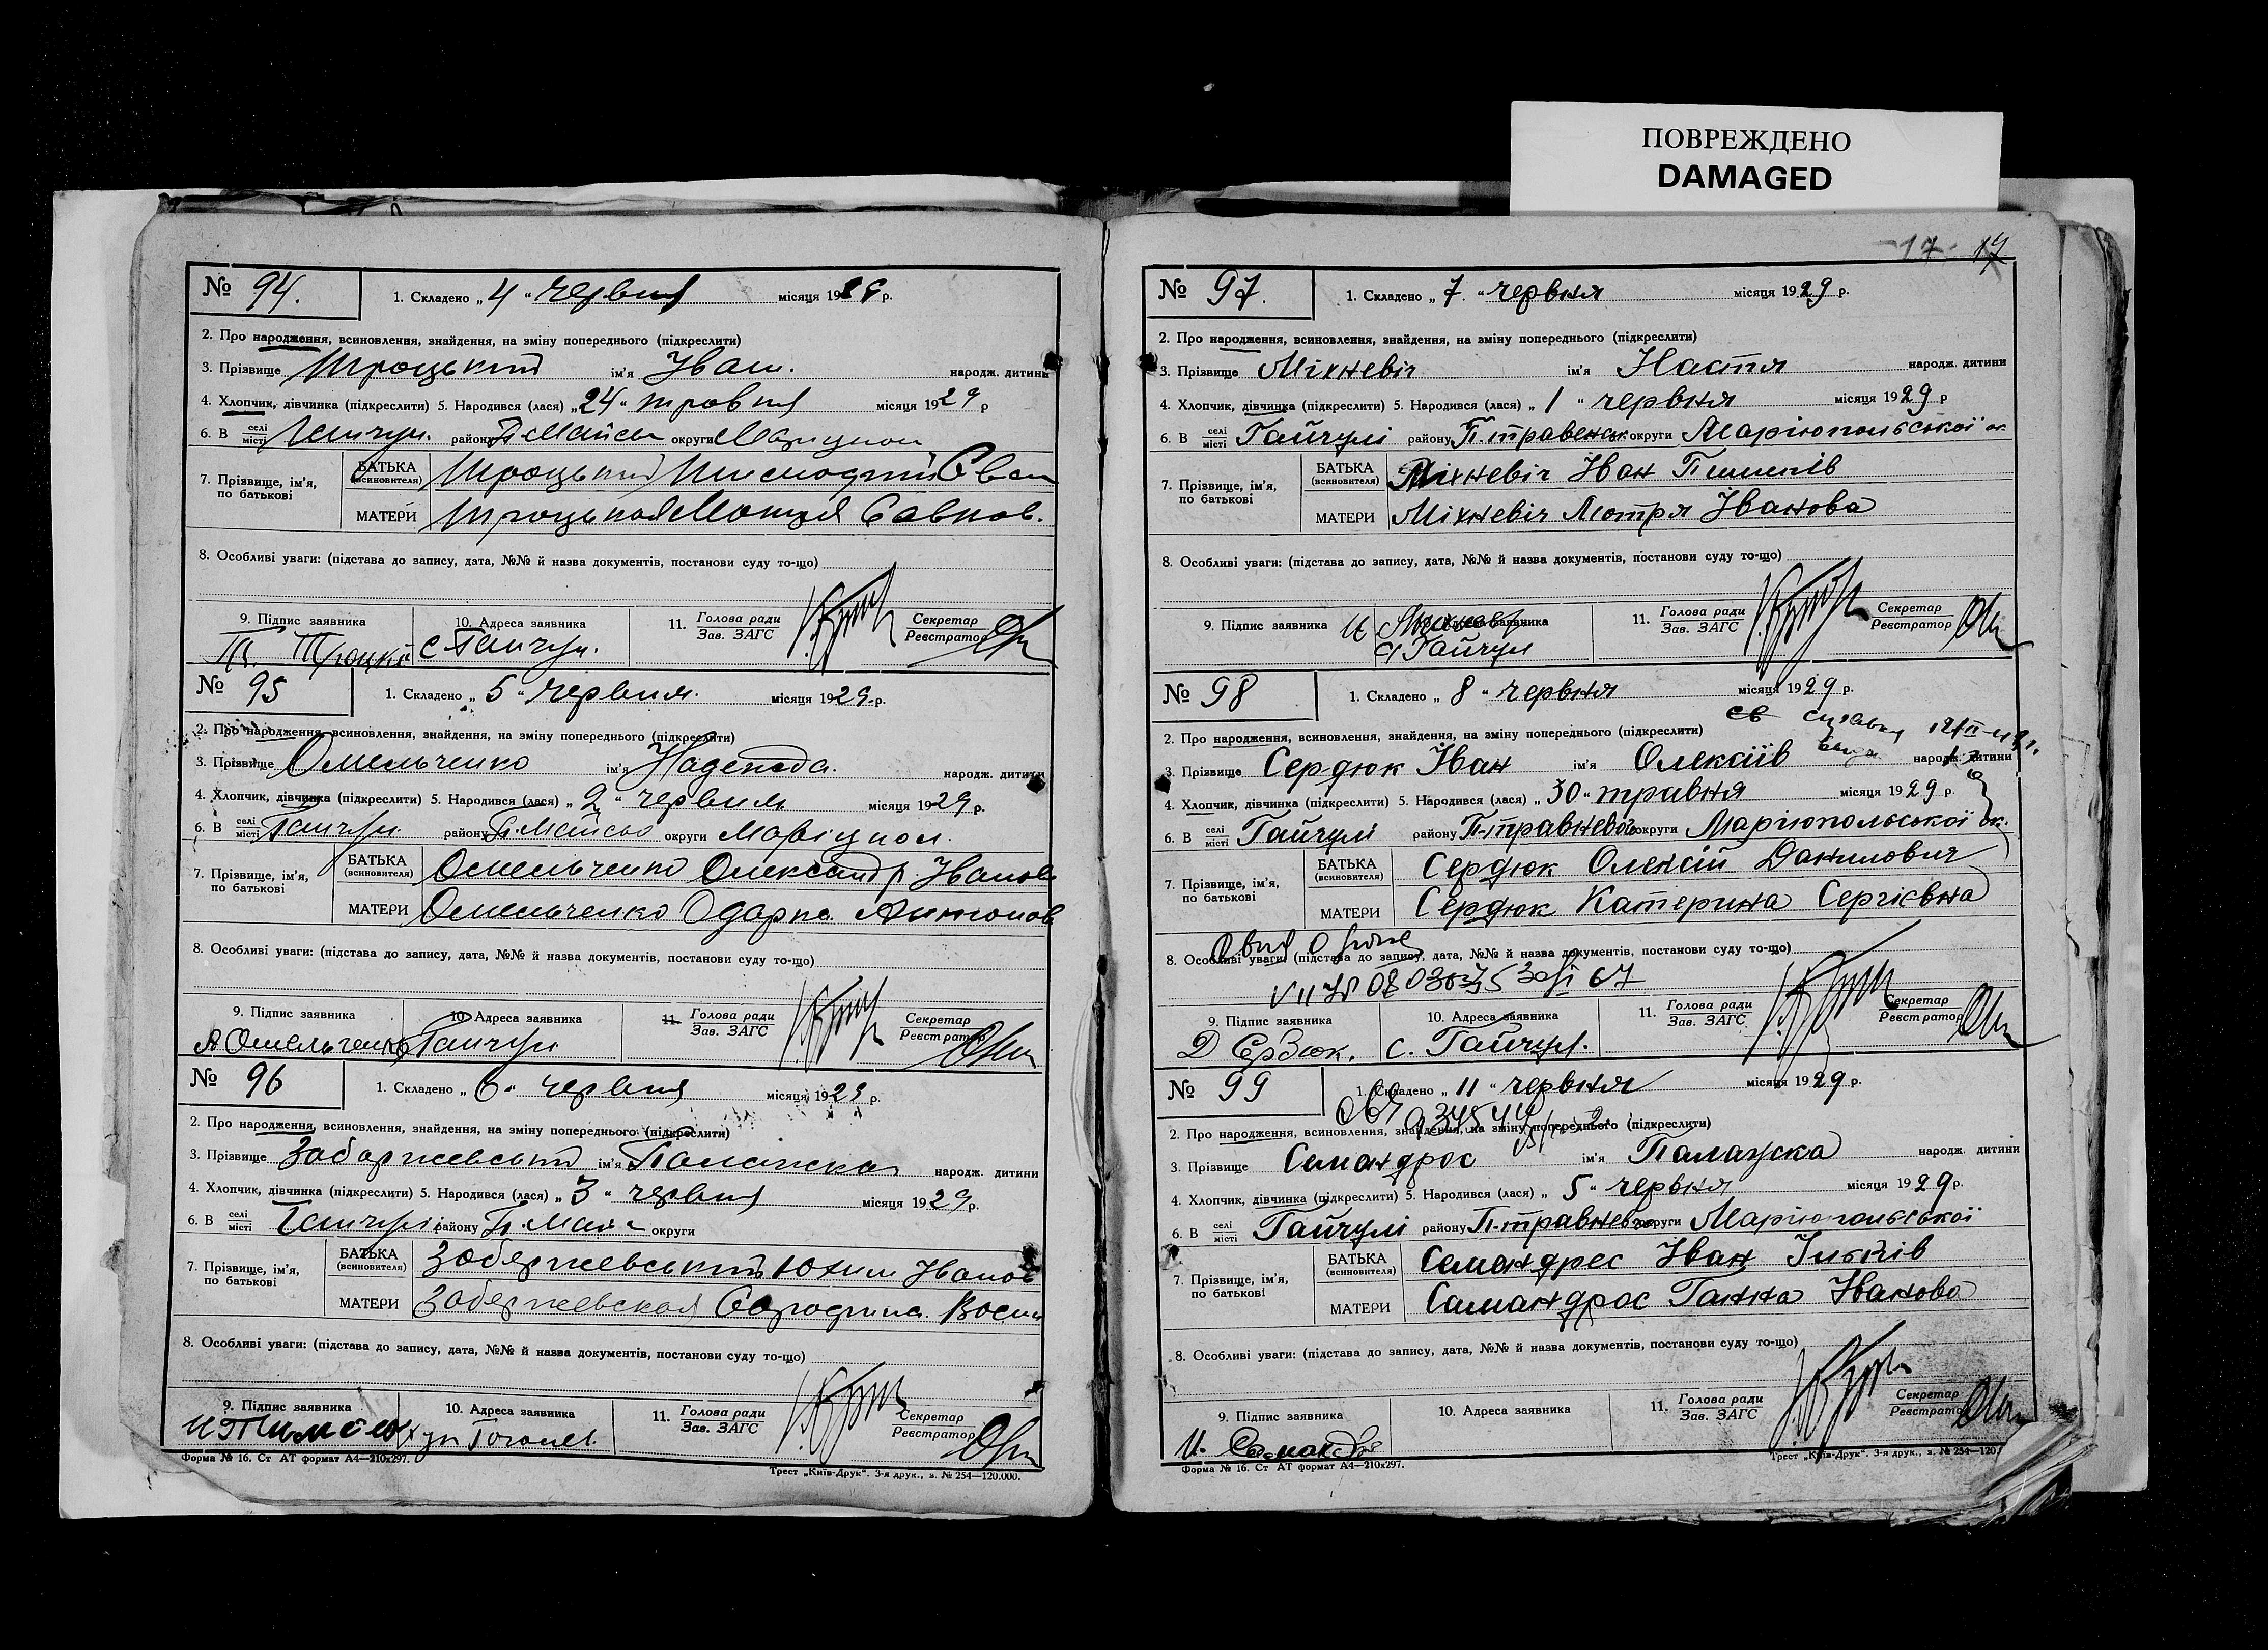 ПОВРЕЖДЕНО
DAMAGED
№ 94. 1. Складено „ 4 “ червня місяця 1929 р.
2. Про народження, всиновлення, знайдення, на зміну попереднього (підкреслити)
3. Прізвище Троцький ім'я Іван. народж. дитини
4. Хлопчик, дівчинка (підкреслити) 5. Народився (лася) „ 24 “ травня місяця 1929 р
6. В селі місті Гайчул. району П. Майськ округи Маріупол
7. Прізвище, ім'я, по батькові БАТЬКА (всиновителя) Троцький
МАТЕРИ Троцькая Савков.
8. Особливі уваги: (підстава до запису, дата, №№ й назва документів, постанови суду то-що)
9. Підпис заявника 10. Адреса заявника 11. Голова ради Зав. ЗАГС Секретар Реєстратор
Т. с. Гайчул.
№ 95 1. Складено „ 5 “ червня. місяця 1929 р.
2. Про народження, всиновлення, знайдення, на зміну попереднього (підкреслити)
3. Прізвище Омельченко ім'я Надежда. народж. дитини
4. Хлопчик, дівчинка (підкреслити) 5. Народився (лася) „ 2 “ червня місяця 1929 р.
6. В селі місті Гайчул району П. Майськ округи Маріупол.
7. Прізвище, ім'я, по батькові БАТЬКА (всиновителя) Омельченко Олександр Іванов
МАТЕРИ Омельченко Одарка Антонов
8. Особливі уваги: (підстава до запису, дата, №№ й назва документів, постанови суду то-що)
9. Підпис заявника 10. Адреса заявника 11. Голова ради Зав. ЗАГС Секретар Реєстратор
А Омельченко Гайчул
№ 96 1. Складено „ 6 “ червня місяця 1929 р.
2. Про народження, всиновлення, знайдення, на зміну попереднього (підкреслити)
3. Прізвище ім'я Палажка народж. дитини
4. Хлопчик, дівчинка (підкреслити) 5. Народився (лася) „ 3 “ червня місяця 1929 р.
6. В селі місті Гайчулі району П. Май округи
7. Прізвище, ім'я, по батькові БАТЬКА (всиновителя) Юхим Іванов
МАТЕРИ
8. Особливі уваги: (підстава до запису, дата, №№ й назва документів, постанови суду то-що)
9. Підпис заявника 10. Адреса заявника 11. Голова ради Зав. ЗАГС Секретар Реєстратор
Форма № 16. Ст АТ формат А4—210х297. Трест „Київ-Друк“. 3-я друк., з. № 254—120.000.
17 17
№ 97. 1. Складено „ 7. “ червня місяця 1929 р.
2. Про народження, всиновлення, знайдення, на зміну попереднього (підкреслити)
3. Прізвище Міхневіч ім'я Настя народж. дитини
4. Хлопчик, дівчинка (підкреслити) 5. Народився (лася) „ 1 “ червня місяця 1929 р
6. В селі місті Гайчулі району П.-травенськ округи Маріюпольської ок
7. Прізвище, ім'я, по батькові БАТЬКА (всиновителя) Міхневіч Іван
МАТЕРИ Міхневіч Мотря Іванова
8. Особливі уваги: (підстава до запису, дата, №№ й назва документів, постанови суду то-що)
9. Підпис заявника заявника 11. Голова ради Зав. ЗАГС Секретар Реєстратор
с Гайчул
№ 98 1. Складено „ 8 “ червня місяця 1929 р.
2. Про народження, всиновлення, знайдення, на зміну попереднього (підкреслити)
3. Прізвище Сердюк Іван ім'я Олексіїв народж. дитини
4. Хлопчик, дівчинка (підкреслити) 5. Народився (лася) „ 30 “ травня місяця 1929 р.
6. В селі місті Гайчулі району П-травневого округи Маріюпольської ок.
7. Прізвище, ім'я, по батькові БАТЬКА (всиновителя) Сердюк Олексій Данилович
МАТЕРИ Сердюк Катерина Сергієвна
8. Особливі уваги: (підстава до запису, дата, №№ й назва документів, постанови суду то-що)
9. Підпис заявника 10. Адреса заявника 11. Голова ради Зав. ЗАГС Секретар Реєстратор
Д Сердюк. с. Гайчул.
№ 99 1. Складено „ 11 “ червня місяця 1929 р.
2. Про народження, всиновлення, знайдення, на зміну попереднього (підкреслити)
3. Прізвище Самандрос ім'я Палажка народж. дитини
4. Хлопчик, дівчинка (підкреслити) 5. Народився (лася) „ 5 “ червня місяця 1929 р.
6. В селі місті Гайчулі району П-травневого округи Маріюпольської
7. Прізвище, ім'я, по батькові БАТЬКА (всиновителя) Самандрос Іван Ільків
МАТЕРИ Самандрос Ганна Іванова
8. Особливі уваги: (підстава до запису, дата, №№ й назва документів, постанови суду то-що)
9. Підпис заявника 10. Адреса заявника 11. Голова ради Зав. ЗАГС Секретар Реєстратор
Форма № 16. Ст АТ формат А4—210х297. Трест „Київ-Друк“. 3-я друк., з. № 254—120